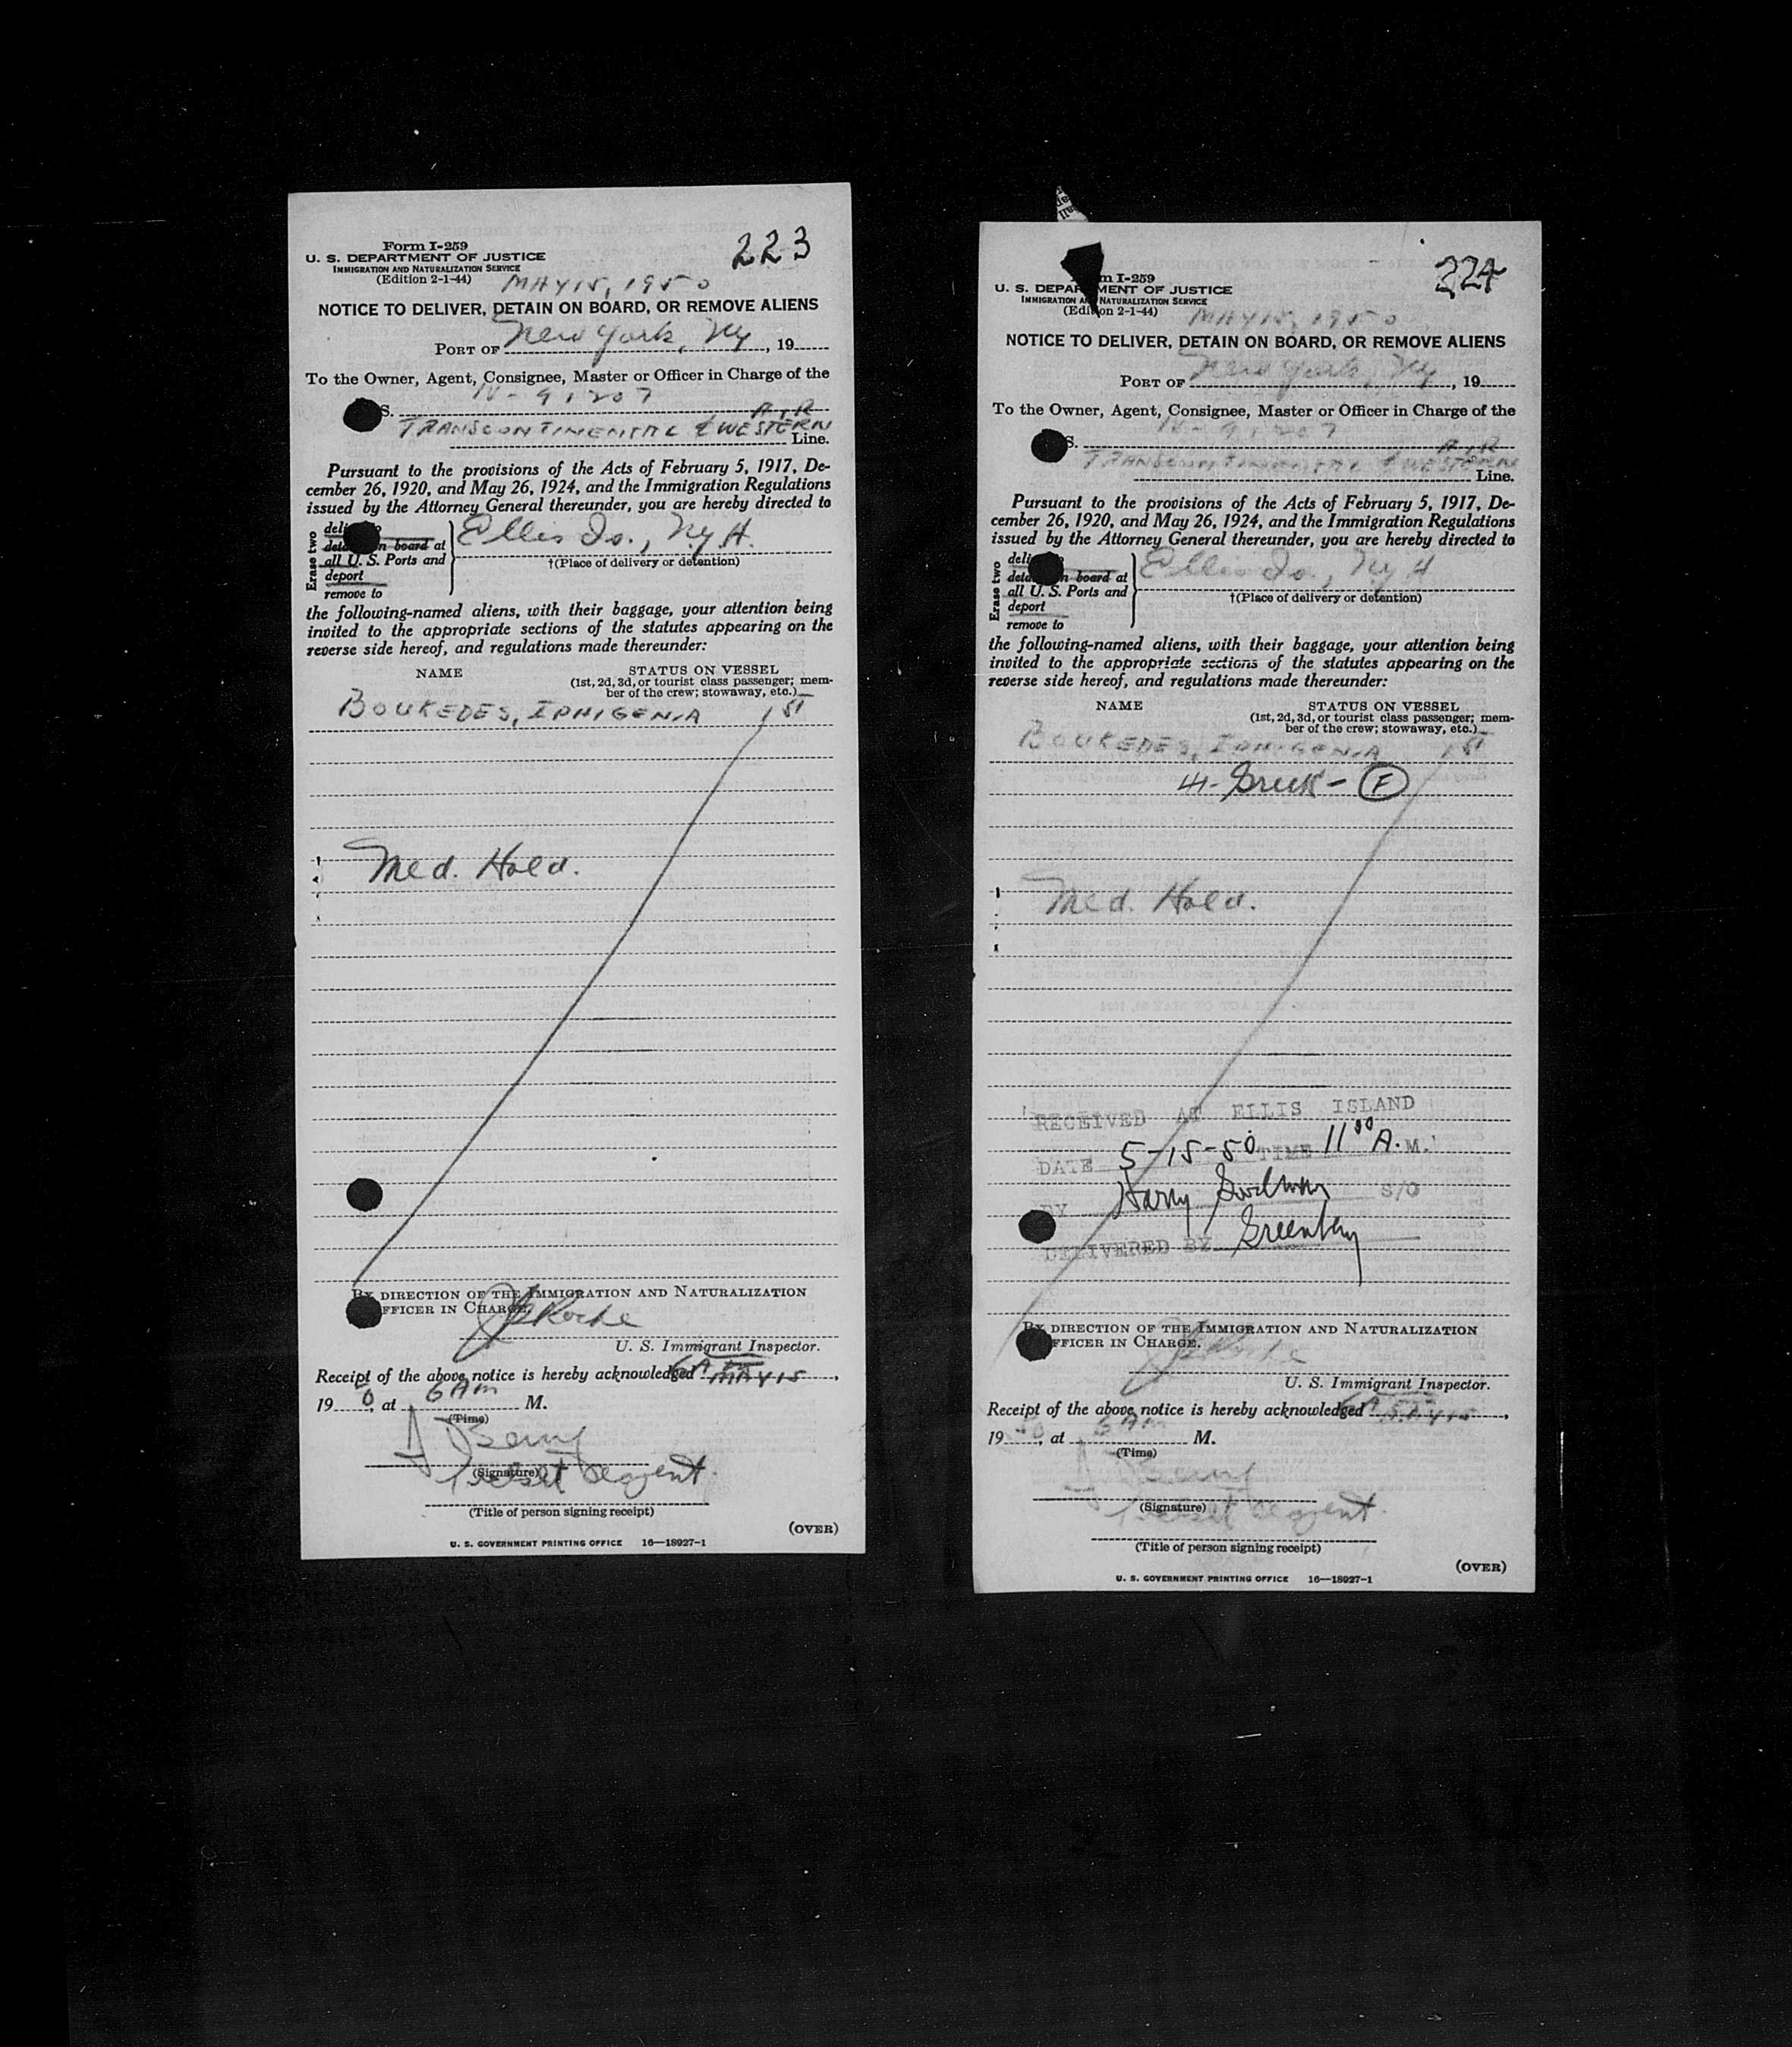 Form I-259
U. S. DEPARTMENT OF JUSTICE
IMMIGRATION AND NATURALIZATION SERVICE
(Edition 2-1-44)
223
MAY 15, 1950
NOTICE TO DELIVER, DETAIN ON BOARD, OR REMOVE ALIENS
PORT OF New York, NY, 19
To the Owner, Agent, Consignee, Master or Officer in Charge of the
S. N-91207
AIR
TRANSCONTINENTAL & WESTERN Line.
Pursuant to the provisions of the Acts of February 5, 1917, De-
cember 26, 1920, and May 26, 1924, and the Immigration Regulations
issued by the Attorney General thereunder, you are hereby directed to
Erase two
deliver to
detain on board at
all U. S. Ports and
deport
remove to
Ellis Is., N.Y.H.
†(Place of delivery or detention)
the following-named aliens, with their baggage, your attention being
invited to the appropriate sections of the statutes appearing on the
reverse side hereof, and regulations made thereunder:
NAME STATUS ON VESSEL
(1st, 2d, 3d, or tourist class passenger; mem-
ber of the crew; stowaway, etc.)
BOUKEDES, IPHIGENIA 1st
Med. Hold.
BY DIRECTION OF THE IMMIGRATION AND NATURALIZATION
OFFICER IN CHARGE.
Roche
U. S. Immigrant Inspector.
Receipt of the above notice is hereby acknowledged MAY 15,
19 50, at 6 AM M.
(Time)
(Signature)
Ticket Agent.
(Title of person signing receipt)
(OVER)
U. S. GOVERNMENT PRINTING OFFICE 16—18927-1
Form I-259
U. S. DEPARTMENT OF JUSTICE
IMMIGRATION AND NATURALIZATION SERVICE
(Edition 2-1-44)
224
MAY 15, 1950
NOTICE TO DELIVER, DETAIN ON BOARD, OR REMOVE ALIENS
PORT OF New York, NY, 19
To the Owner, Agent, Consignee, Master or Officer in Charge of the
S. N-91207
AIR
TRANSCONTINENTAL & WESTERN Line.
Pursuant to the provisions of the Acts of February 5, 1917, De-
cember 26, 1920, and May 26, 1924, and the Immigration Regulations
issued by the Attorney General thereunder, you are hereby directed to
Erase two
deliver to
detain on board at
all U. S. Ports and
deport
remove to
Ellis Is., N.Y.H
†(Place of delivery or detention)
the following-named aliens, with their baggage, your attention being
invited to the appropriate sections of the statutes appearing on the
reverse side hereof, and regulations made thereunder:
NAME STATUS ON VESSEL
(1st, 2d, 3d, or tourist class passenger; mem-
ber of the crew; stowaway, etc.)
BOUKEDES, IPHIGENIA 1st
Greek - F
Med. Hold.
RECEIVED AT ELLIS ISLAND
DATE 5-15-50 TIME 11 00 A.M.
BY Harry S/O
DELIVERED BY Greenberg
BY DIRECTION OF THE IMMIGRATION AND NATURALIZATION
OFFICER IN CHARGE.
Roche
U. S. Immigrant Inspector.
Receipt of the above notice is hereby acknowledged MAY 15,
19 50, at 6 AM M.
(Time)
(Signature)
Ticket Agent.
(Title of person signing receipt)
(OVER)
U. S. GOVERNMENT PRINTING OFFICE 16—18927-1